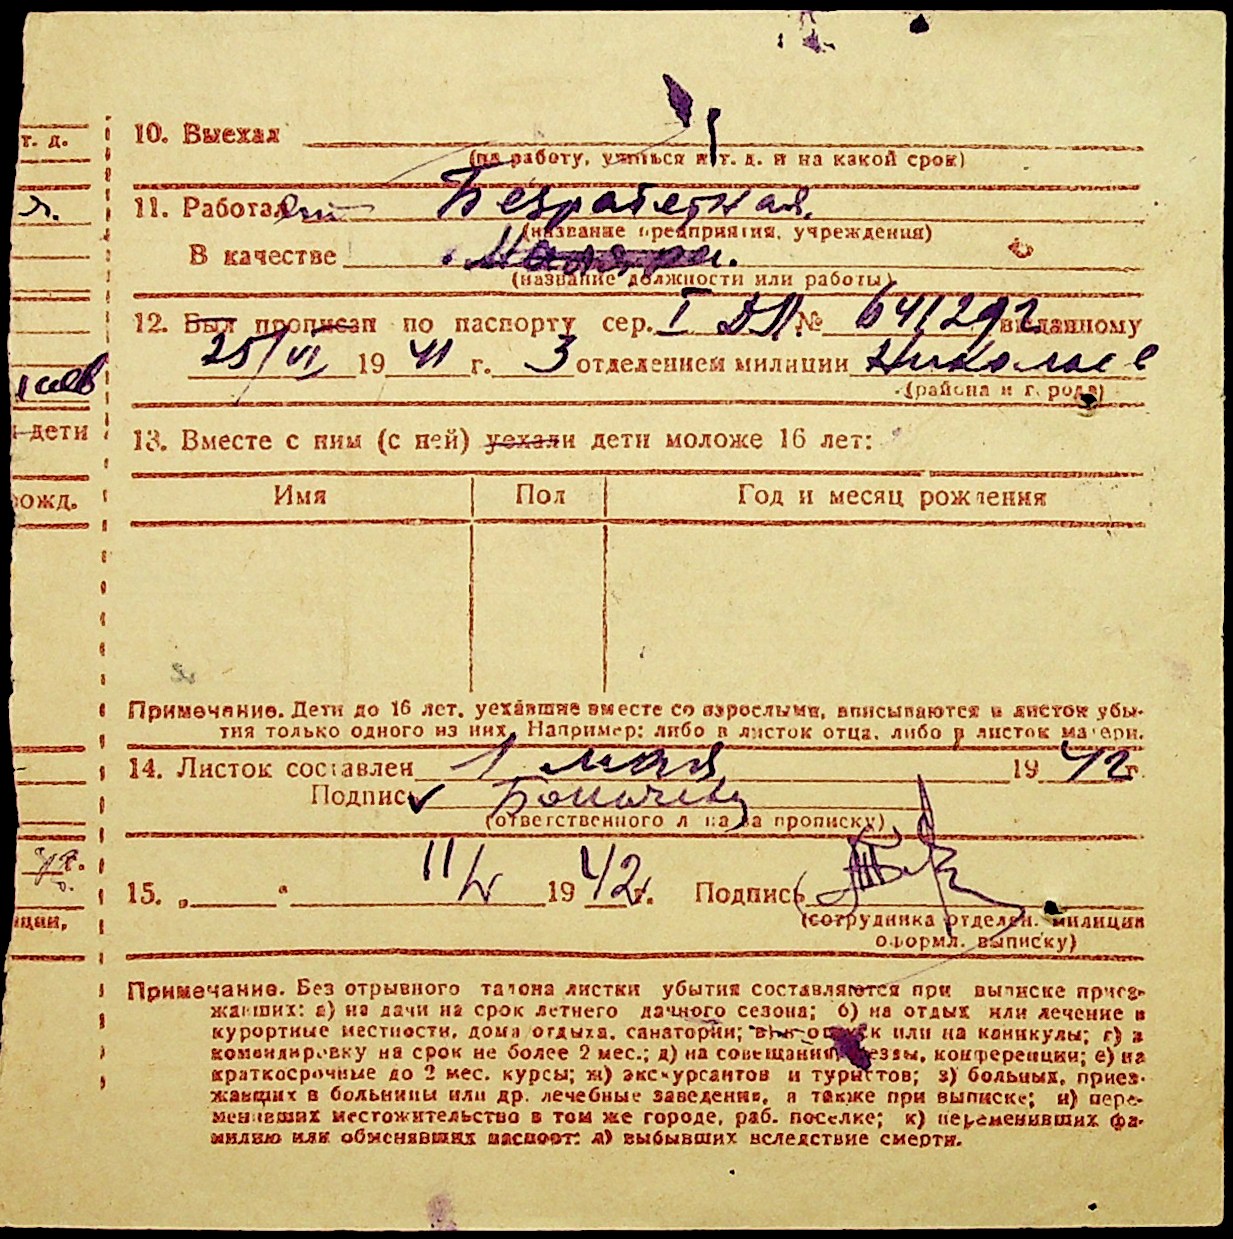 т. д.
10. Выехал
(на работу, учиться и т. д. и на какой срок)
я.
11. Работал Безработная
(название предприятия, учреждения)
В качестве
(название должности или работы)
12. Был прописан по паспорту сер. I ДЛ № 641292 выданному
25/VI 1941 г. 3 отделением милиции Николаев
(района и города)
дети
13. Вместе с ним (с ней) уехали дети моложе 16 лет:
рожд.
Имя Пол Год и месяц рождения
Примечание. Дети до 16 лет, уехавшие вместе со взрослыми, вписываются в листок убы-
тия только одного из них. Например: либо в листок отца, либо в листок матери.
14. Листок составлен 1 мая 1942 г.
Подпись
(ответственного лица за прописку)
15. „ “ 11/V 1942 г. Подпись
(сотрудника отделен. милиции
оформл. выписку)
Примечание. Без отрывного талона листки убытия составляются при выписке приез-
жавших: а) на дачи на срок летнего дачного сезона; б) на отдых или лечение в
курортные местности, дома отдыха, санатории; в) в отпуск или на каникулы; г) в
командировку на срок не более 2 мес.; д) на совещания, съезды, конференции; е) на
краткосрочные до 2 мес. курсы; ж) экскурсантов и туристов; з) больных, приез-
жавших в больницы или др. лечебные заведения, а также при выписке; и) пере-
менивших местожительство в том же городе, раб. поселке; к) переменивших фа-
милию или обменявших паспорт; л) выбывших вследствие смерти.